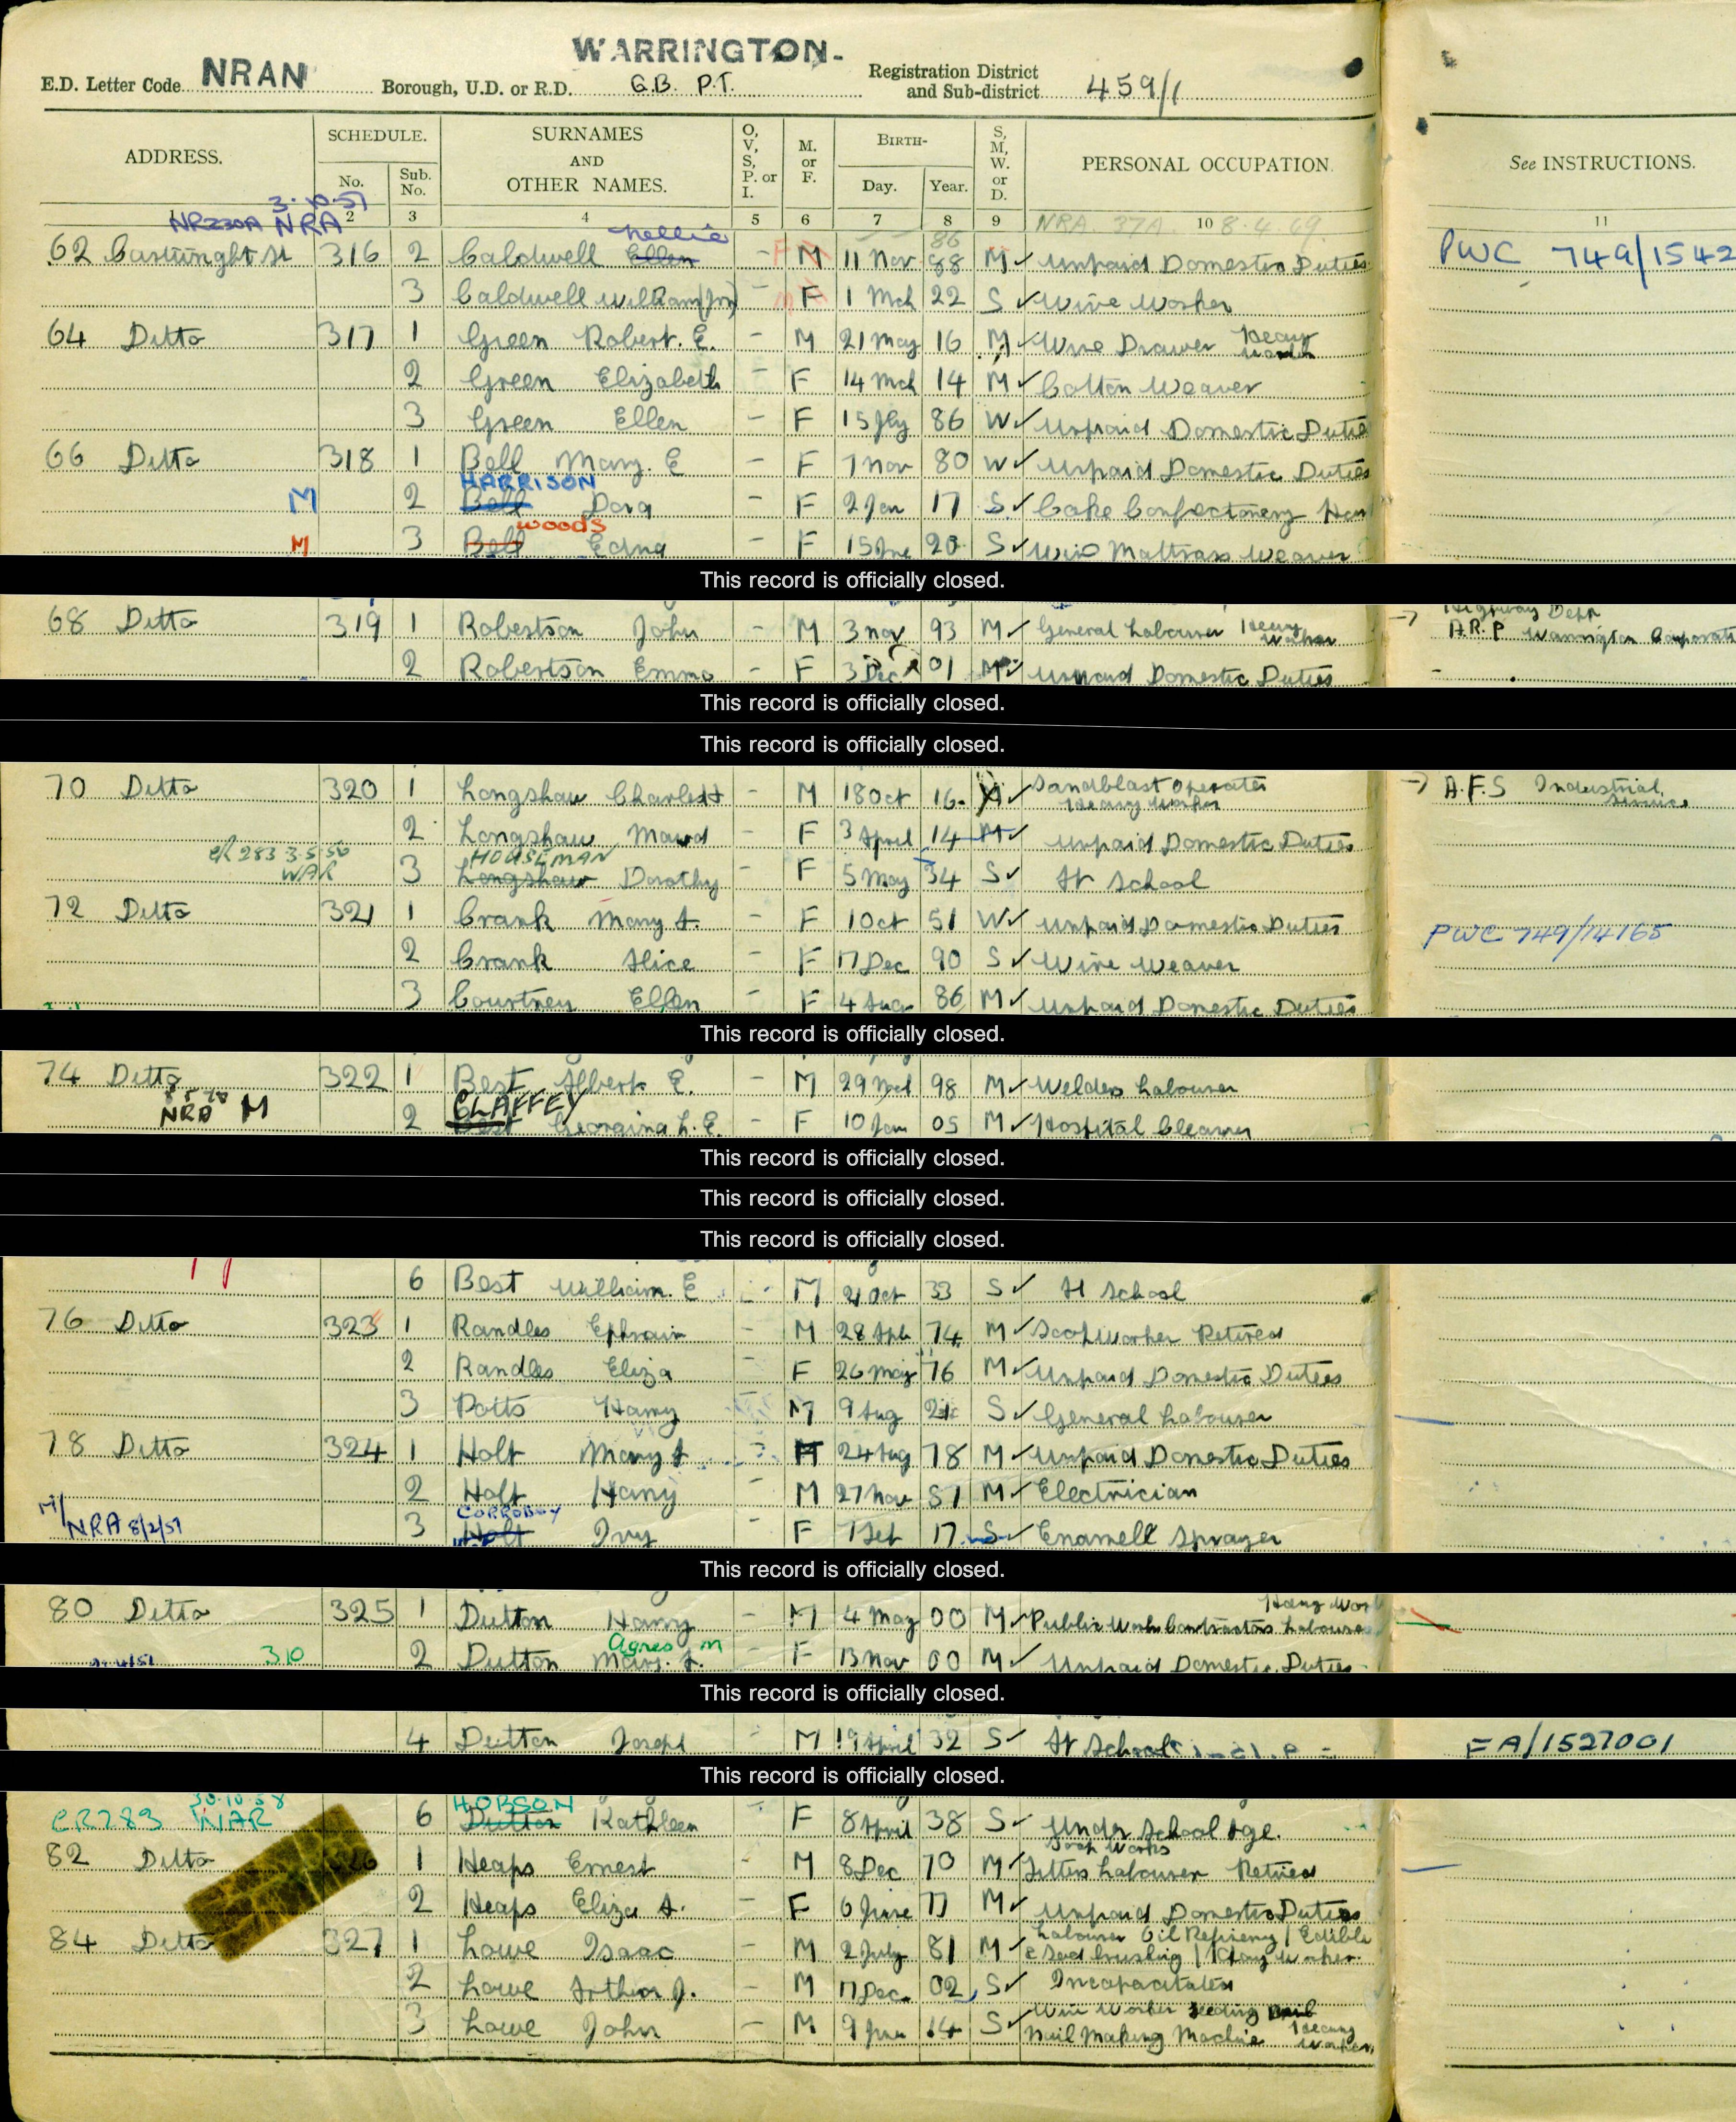 WARRINGTON.
E.D. Letter Code NRAN Borough, U.D. or R.D. G.B. P.T. Registration District and Sub-district 459/1
ADDRESS. SCHEDULE. No. Sub. No. SURNAMES AND OTHER NAMES. O, V, S, P. or I. M. or F. BIRTH- Day. Year. S, M, W. or D. PERSONAL OCCUPATION. See INSTRUCTIONS.
3.10.57
NRA
2 3 4 5 6 7 8 9 10 11
NRA 37A 8.4.69.
Nellie 86
62 Cartwright St 316 2 Caldwell Ellen - M 11 Nov 88 M ✓ Unpaid Domestic Duties PWC 749/1542
3 Caldwell William (Jnr) - F 1 Mch 22 S ✓ Wire Worker
64 Ditto 317 1 Green Robert. E. - M 21 May 16 M ✓ Wire Drawer Heavy Worker
2 Green Elizabeth - F 14 Mch 14 M ✓ Cotton Weaver
3 Green Ellen - F 15 Jly 86 W ✓ Unpaid Domestic Duties
66 Ditto 318 1 Bell Mary. E - F 7 Nov 80 W ✓ Unpaid Domestic Duties
HARRISON
M 2 Bell Dora - F 2 Jan 17 S. ✓ Cake Confectionery
woods
M 3 Bell Edna - F 15 Jne 20 S ✓ Wire Mattrass Weaver
This record is officially closed.
68 Ditto 319 1 Robertson John - M 3 Nov 93 M ✓ General Labourer Heavy Worker → Highway Dept
A.R.P Warrington Corporati
2 Robertson Emma - F 3 Dec 01 M ✓ Unpaid Domestic Duties -
This record is officially closed.
This record is officially closed.
70 Ditto 320 1 Longshaw Charles - M 18 Oct 16. M ✓ Sandblast Operator Heavy Worker → A.F.S Industrial Service
2 Longshaw Maud - F 3 April 14 M ✓ Unpaid Domestic Duties
CR 283 3.5.56 HOUSEMAN
WAR 3 Longshaw Dorothy - F 5 May 34 S ✓ At School
72 Ditto 321 1 Crank Mary A. - F 1 Oct 51 W ✓ Unpaid Domestic Duties PWC 749/14165
2 Crank Alice - F 17 Dec 90 S ✓ Wire Weaver
3 Courtney Ellen - F 4 Aug 86 M ✓ Unpaid Domestic Duties
This record is officially closed.
74 Ditto 322 1 Best Albert E. - M 29 Mch 98 M ✓ Welders Labourer
CLAFFEY
NRA M 2 Best Georgina L. E. - F 10 Jan 05 M ✓ Hospital Cleaner
This record is officially closed.
This record is officially closed.
This record is officially closed.
6 Best William. E - M 21 Oct 33 S ✓ At School
76 Ditto 323 1 Randles Ephraim - M 28 Apl 74 M ✓ Soapworker Retired
2 Randles Eliza - F 26 May 76 M ✓ Unpaid Domestic Duties
3 Potts Harry M 9 Aug 21 S ✓ General Labourer
78 Ditto 324 1 Holt Mary A. F 24 Aug 78 M ✓ Unpaid Domestic Duties
2 Holt Harry - M 27 Nov 81 M ✓ Electrician
M/ NRA 8/2/51 CORROBOY
3 Holt Ivy - F 7 Sep 17 S ✓ Enamell Sprayer
This record is officially closed.
80 Ditto 325 1 Dutton Harry - M 4 May 00 M ✓ Public Works Contractors Labourer Heavy Work
310 Agnes M
2 Dutton Mary. A. - F 13 Nov 00 M ✓ Unpaid Domestic Duties
This record is officially closed.
4 Dutton Joseph - M 19 April 32 S ✓ At School FA/1527001
This record is officially closed.
30.10.58 HOBSON
CR283 WAR 6 Dutton Kathleen - F 8 April 38 S ✓ Under School Age.
Soap Works
82 Ditto 1 Heaps Ernest - M 8 Dec 70 M ✓ Fitters Labourer Retired
2 Heaps Eliza A. - F 6 June 77 M ✓ Unpaid Domestic Duties
84 Ditto 327 1 Lowe Isaac - M 2 July 81 M ✓ Labourer Oil Refinery / Edible
& Seed Crushing / Heavy Worker.
2 Lowe Arthur J. - M 17 Dec 02 S ✓ Incapacitated
3 Lowe John - M 9 Jan 14 S ✓ Wire Worker
Nail Making Machine Heavy Worker